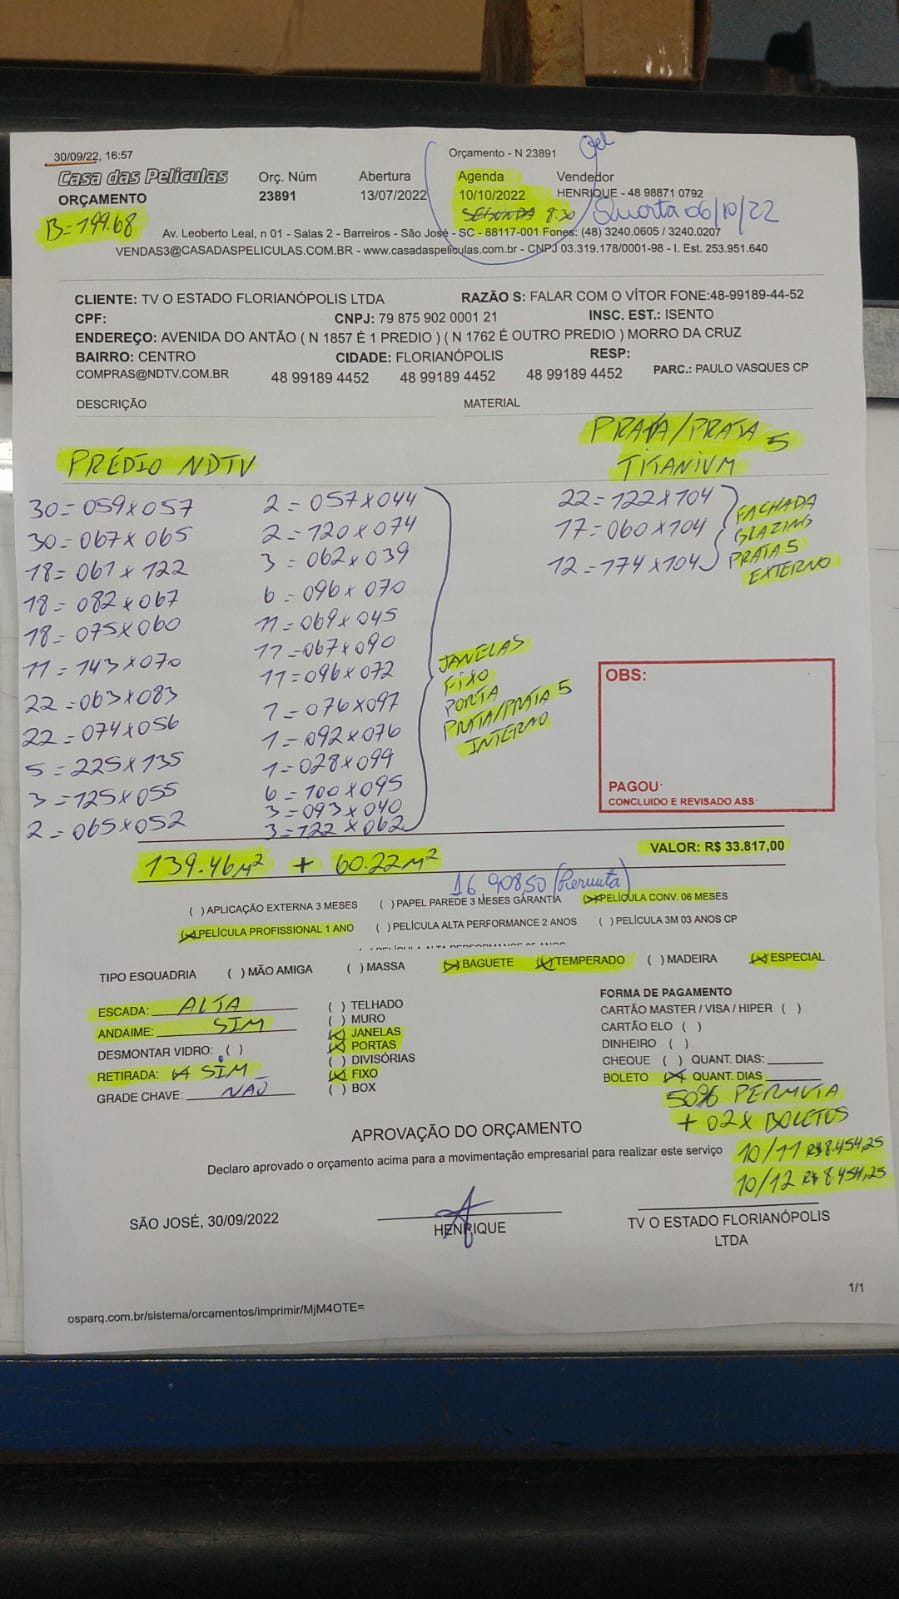 30/09/22, 16:57
Orçamento - N 23891
Casa das Películas
ORÇAMENTO
Orç. Núm
23891
Abertura
13/07/2022
Agenda
10/10/2022
SEGUNDA 8:30
Vendedor
HENRIQUE - 48 98871 0792
Quarta 06/10/22
B=199.68
Av. Leoberto Leal, n 01 - Salas 2 - Barreiros - São José - SC - 88117-001 Fones: (48) 3240.0605 / 3240.0207
VENDAS3@CASADASPELICULAS.COM.BR - www.casadaspeliculas.com.br - CNPJ 03.319.178/0001-98 - I. Est. 253.951.640
CLIENTE: TV O ESTADO FLORIANÓPOLIS LTDA RAZÃO S: FALAR COM O VÍTOR FONE:48-99189-44-52
CPF: CNPJ: 79 875 902 0001 21 INSC. EST.: ISENTO
ENDEREÇO: AVENIDA DO ANTÃO ( N 1857 É 1 PREDIO ) ( N 1762 É OUTRO PREDIO ) MORRO DA CRUZ
BAIRRO: CENTRO CIDADE: FLORIANÓPOLIS RESP:
COMPRAS@NDTV.COM.BR 48 99189 4452 48 99189 4452 48 99189 4452 PARC.: PAULO VASQUES CP
DESCRIÇÃO MATERIAL
PRÉDIO NDTV
PRATA/PRATA 5
TITANIUM
30=059x057
30=067x065
18=061x122
18=082x067
18=075x060
11=143x070
22=063x083
22=074x056
5=225x135
3=125x055
2=065x052
2=057x044
2=120x074
3=062x039
6=096x070
11=069x045
11=067x090
11=096x072
1=076x097
1=092x076
1=028x099
6=100x095
3=093x040
3=122x062
JANELAS
FIXO
PORTA
PRATA/PRATA 5
INTERNO
22=122x104
17=060x104
12=174x104
FACHADA
GLAZING
PRATA 5
EXTERNO
OBS:
PAGOU:
CONCLUIDO E REVISADO ASS:
139.46M² + 60.22M²
VALOR: R$ 33.817,00
16,908,50 (Permuta)
( ) APLICAÇÃO EXTERNA 3 MESES ( ) PAPEL PAREDE 3 MESES GARANTIA (X) PELÍCULA CONV. 06 MESES
(X) PELÍCULA PROFISSIONAL 1 ANO ( ) PELÍCULA ALTA PERFORMANCE 2 ANOS ( ) PELÍCULA 3M 03 ANOS CP
TIPO ESQUADRIA ( ) MÃO AMIGA ( ) MASSA (X) BAGUETE (X) TEMPERADO ( ) MADEIRA (X) ESPECIAL
ESCADA: ALTA
ANDAIME: SIM
DESMONTAR VIDRO: ( )
RETIRADA: (X) SIM
GRADE CHAVE: NAO
( ) TELHADO
( ) MURO
(X) JANELAS
(X) PORTAS
( ) DIVISÓRIAS
(X) FIXO
( ) BOX
FORMA DE PAGAMENTO
CARTÃO MASTER / VISA / HIPER ( )
CARTÃO ELO ( )
DINHEIRO ( )
CHEQUE ( ) QUANT. DIAS:
BOLETO (X) QUANT. DIAS
50% PERMUTA
+ 02X BOLETOS
10/11 R$ 8.454,25
10/12 R$ 8.454,25
APROVAÇÃO DO ORÇAMENTO
Declaro aprovado o orçamento acima para a movimentação empresarial para realizar este serviço
SÃO JOSÉ, 30/09/2022
HENRIQUE
TV O ESTADO FLORIANÓPOLIS
LTDA
1/1
osparq.com.br/sistema/orcamentos/imprimir/MjM4OTE=